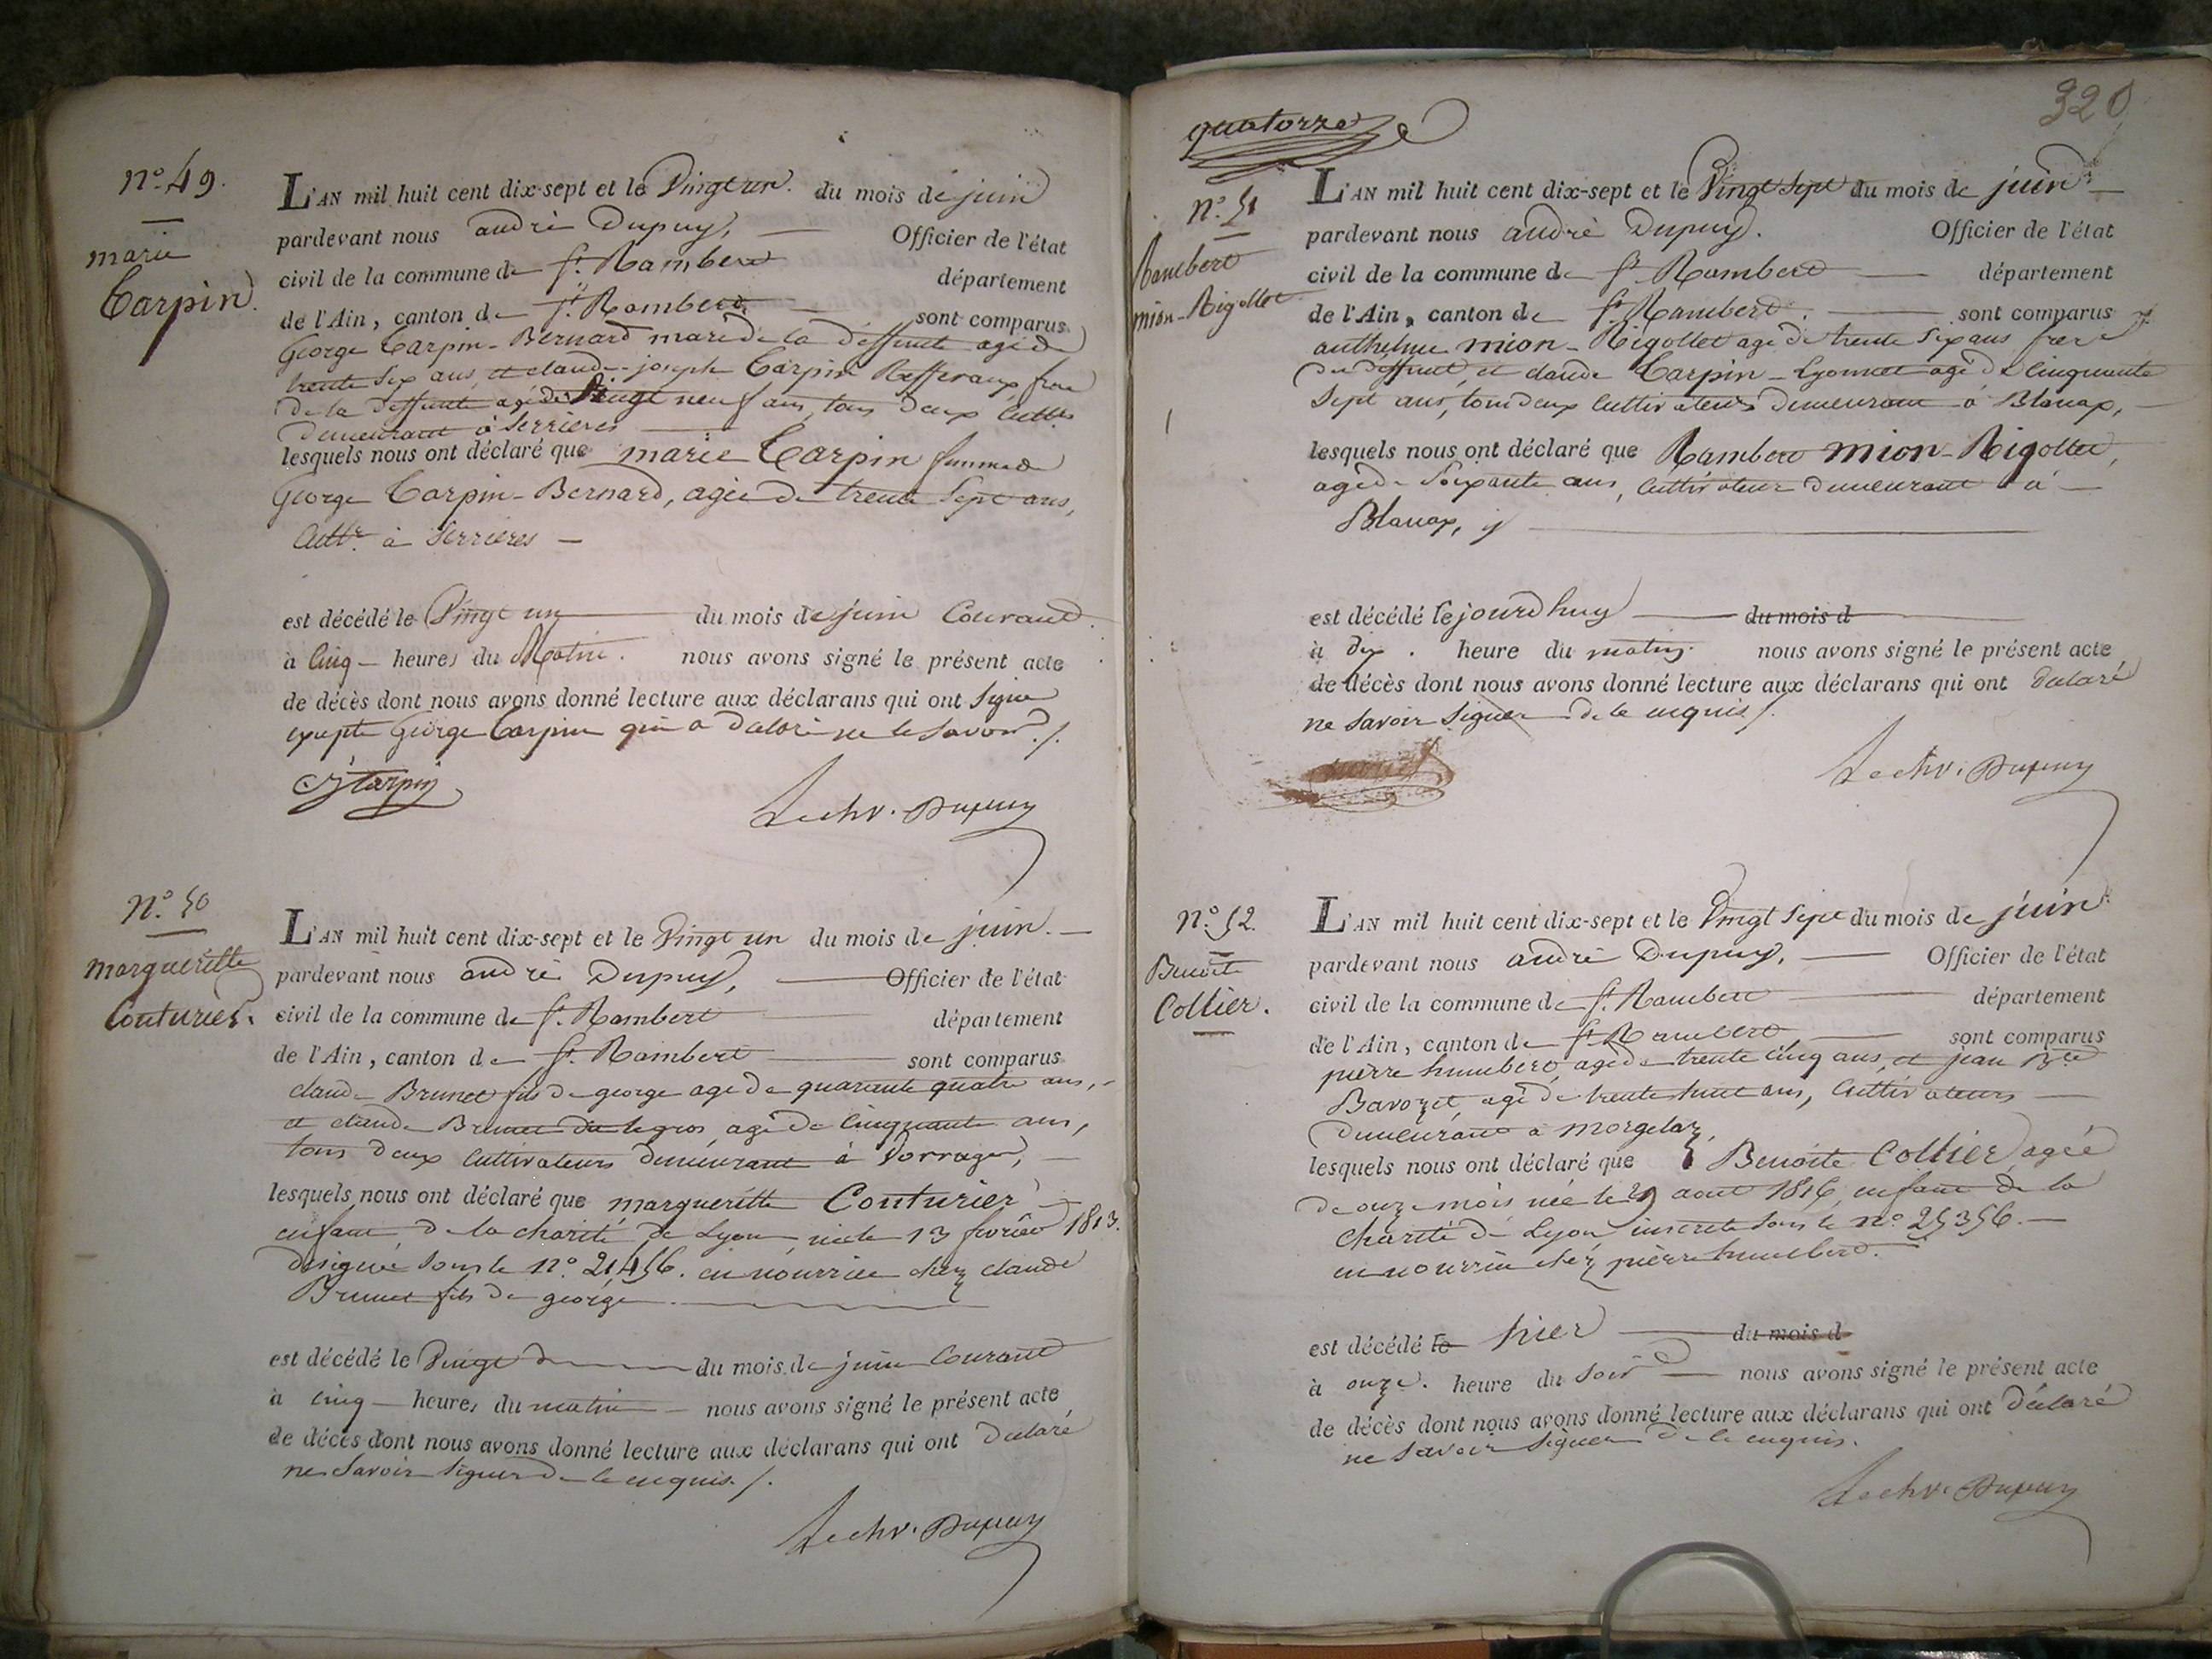 n.º 49.
marie
Carpin.
L'AN mil huit cent dix-sept et le Vingt un. du mois de juin
pardevant nous andré Dupuy, Officier de l'état
civil de la commune de St. Rambert département
de l'Ain, canton de St. Rambert sont comparus
George Carpin-Bernard mari de la deffunte agé de
trente six ans, et claude-joseph Carpin frere
de la deffunte agé de Vingt neuf ans, tous deux Cultrs
demeurant à Serrieres
lesquels nous ont déclaré que marie Carpin femme de
George Carpin-Bernard, agée de trente Sept ans,
Cultr. à Serrieres
est décédé le Vingt un du mois de juin Courant.
à Cinq heures du Matin. nous avons signé le présent acte
de décès dont nous avons donné lecture aux déclarans qui ont Signé
excepté George Carpin qui a declaré ne le Savoir./.
CJ Carpin
Le chv. Dupuy
N.º 50
margueritte
Couturier.
L'AN mil huit cent dix-sept et le Vingt un du mois de juin.
pardevant nous andré Dupuy, Officier de l'état
civil de la commune de St. Rambert département
de l'Ain, canton de St. Rambert sont comparus
claude Brunet fils de george agé de quarante quatre ans,
et claude Brunet dit legros agé de Cinquante ans,
tous deux Cultivateurs demeurant à Dorvage,
lesquels nous ont déclaré que margueritte Couturier
enfant de la charité de Lyon, née le 13 fevrier 1813.
designée Sous le n.º 21456. en nourrice chez claude
Brunet fils de george
est décédé le Vingt du mois de juin Courant
à cinq heures du matin nous avons signé le présent acte
de décès dont nous avons donné lecture aux déclarans qui ont declaré
ne Savoir Signer de ce enquis./.
Le chv. Dupuy
320
quatorze
N.º 51
Rambert
mion-Rigollet
L'AN mil huit cent dix-sept et le Vingt Sept du mois de juin
pardevant nous andré Dupuy. Officier de l'état
civil de la commune de St Rambert département
de l'Ain, canton de St Rambert. sont comparus
anthelme mion-Rigollet agé de trente Six ans frere
du deffunt, et claude Carpin-Lyonnet agé de Cinquante
Sept ans, tous deux Cultivateurs demeurant à Blanaz,
lesquels nous ont déclaré que Rambert mion-Rigollet,
agé de Soixante ans, Cultivateur demeurant à
Blanaz, y
est décédé le jourd'huy du mois d
à dix. heure du matin. nous avons signé le présent acte
de décès dont nous avons donné lecture aux déclarans qui ont declaré
ne Savoir Signer de ce enquis./.
Le chv. Dupuy
N.º 52.
Benoite
Collier.
L'AN mil huit cent dix-sept et le Vingt Sept du mois de juin
pardevant nous andré Dupuy, Officier de l'état
civil de la commune de St. Rambert département
de l'Ain, canton de St Rambert, sont comparus
pierre humbert, agé de trente cinq ans, et jean Bte
Bavozet, agé de trente huit ans, Cultivateurs
demeurant à Morgelaz,
lesquels nous ont déclaré que Benoite Collier agée
de onze mois née le 29 aout 1816, enfant de la
charité de Lyon inscrite Sous le n.º 25356.
en nourrice chéz pierre humbert.
est décédé le hier du mois d
à onze. heure du Soir nous avons signé le présent acte
de décès dont nous avons donné lecture aux déclarans qui ont déclaré
ne Savoir Signer de ce enquis.
Le chv. Dupuy